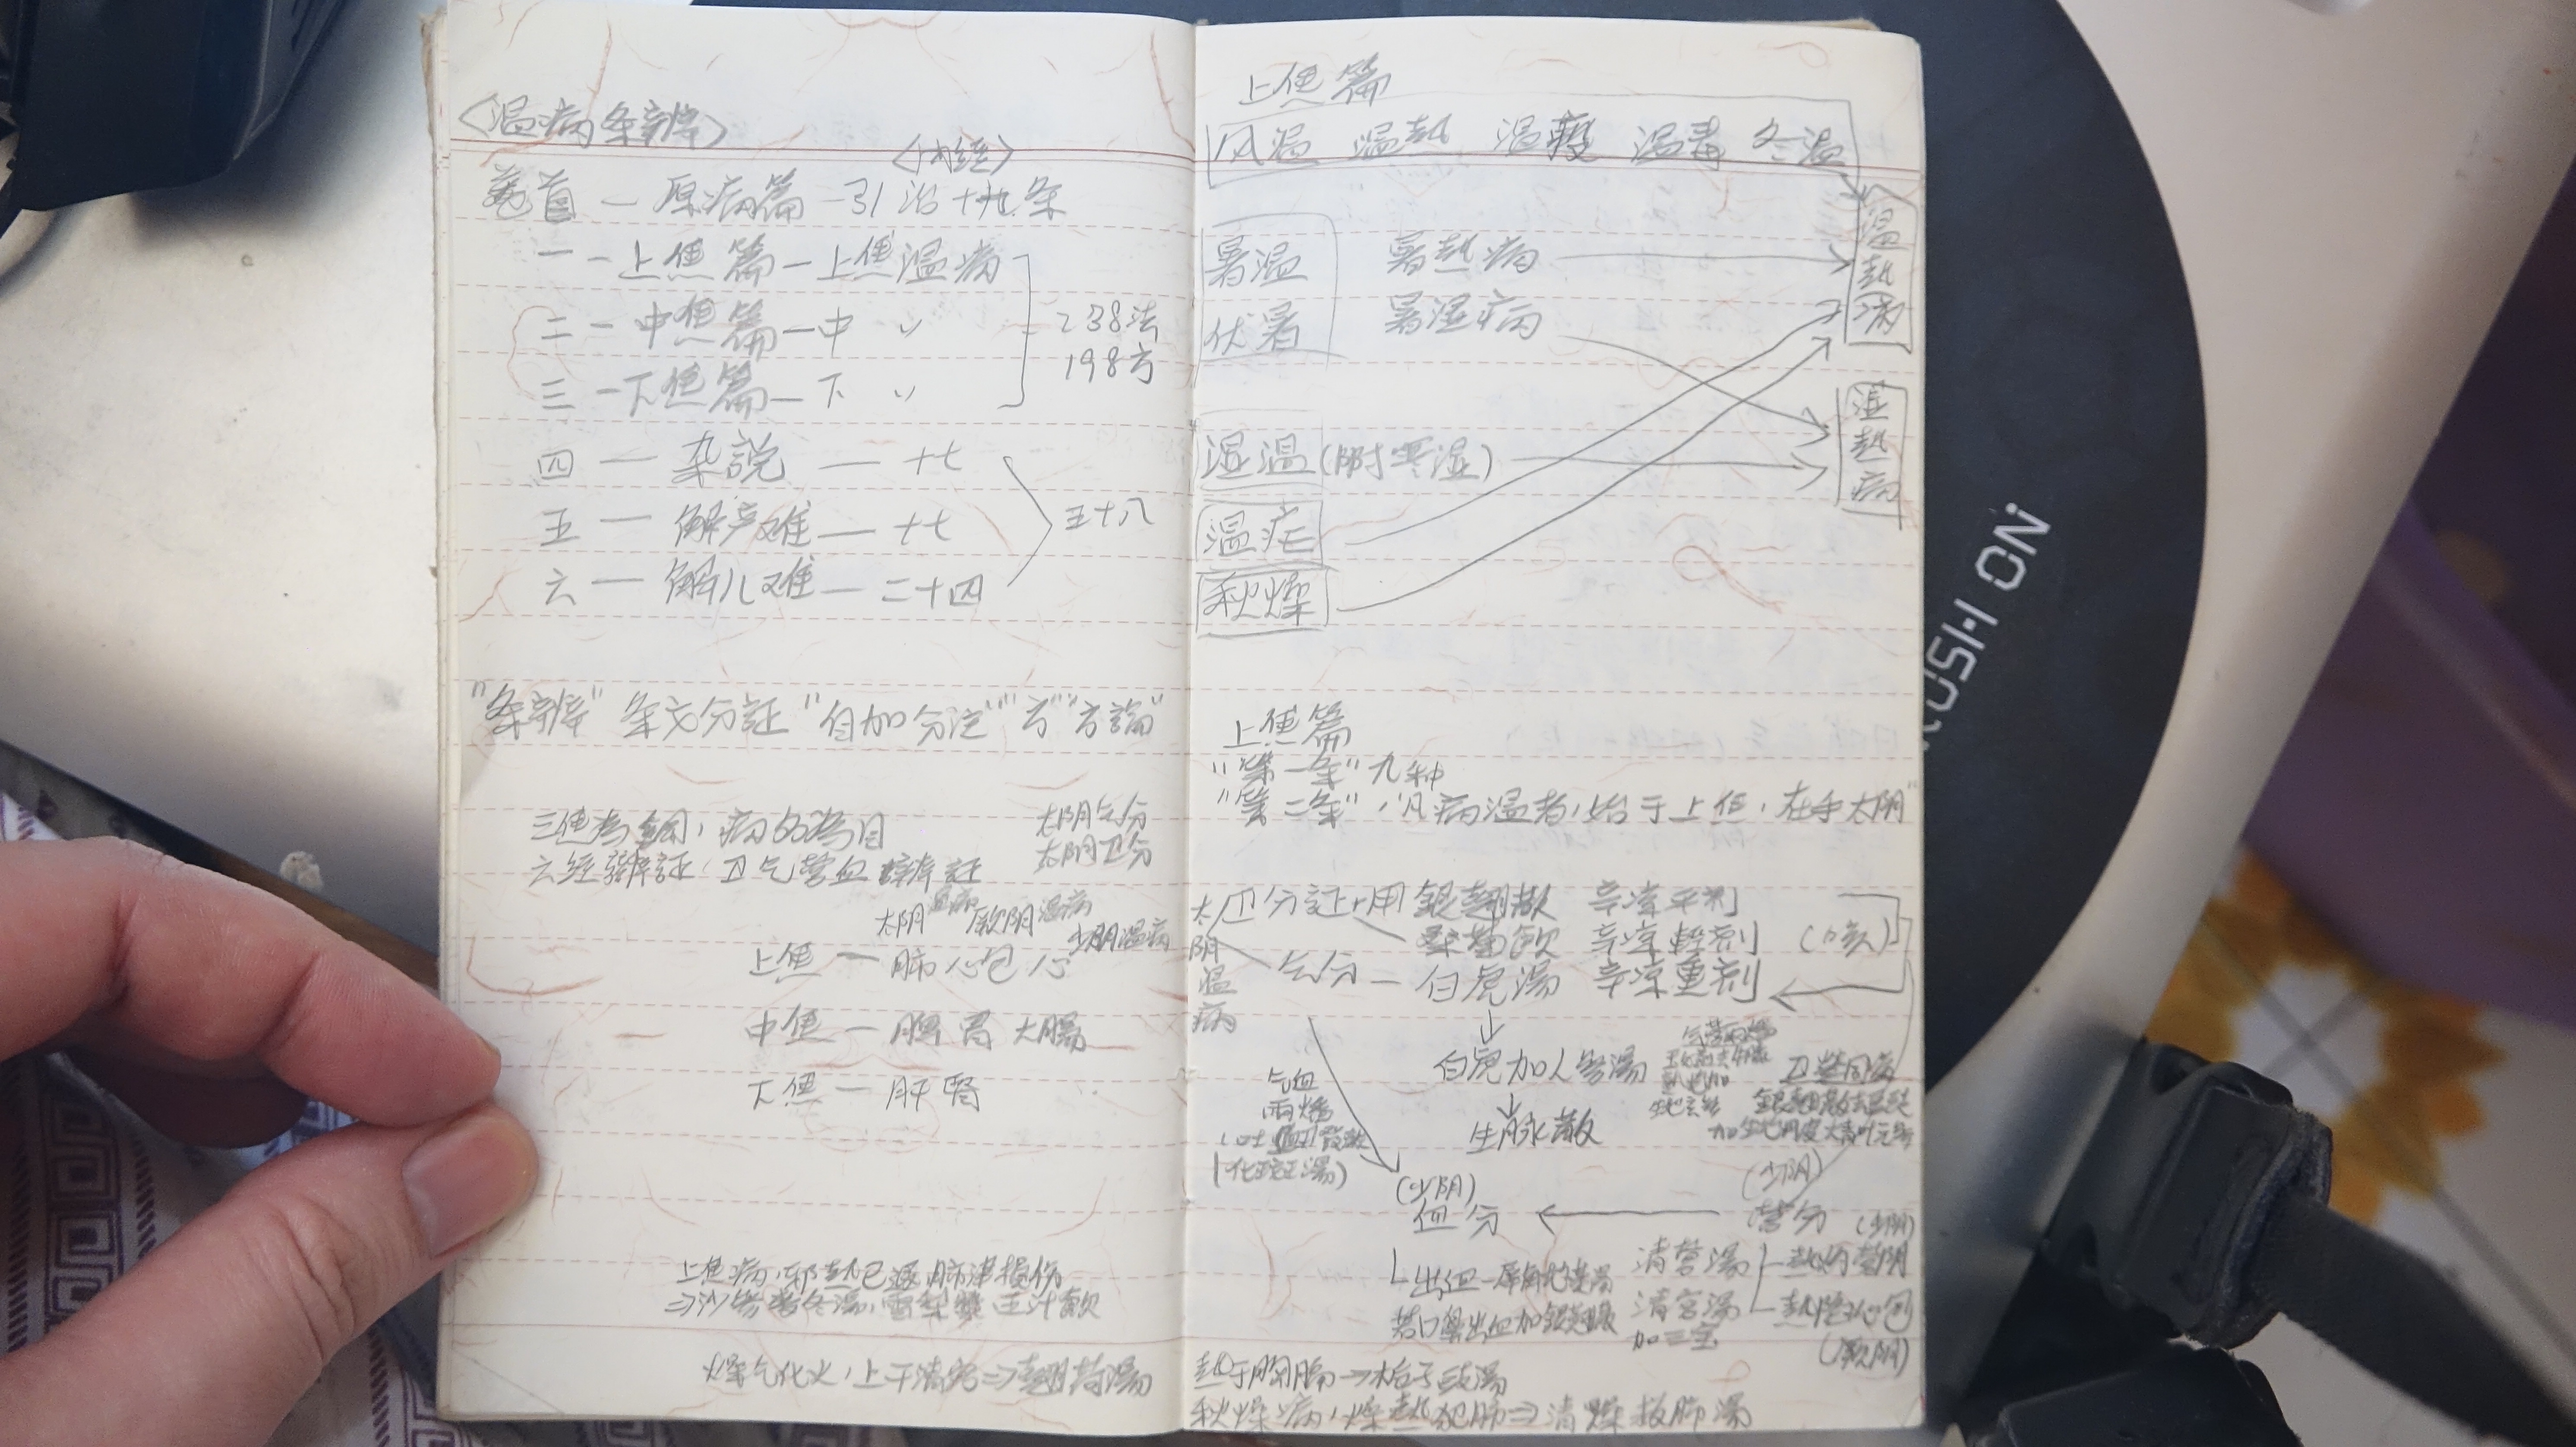 <温病条辨>
<内经>
卷首 — 原病篇 — 引治十九条
一 — 上焦篇 — 上焦温病
二 — 中焦篇 — 中 〃
三 — 下焦篇 — 下 〃
238法
198方
四 — 杂説 — 十七
五 — 解产难 — 十七
六 — 解儿难 — 二十四
五十八
"条辨" 条文分証 "自加分注" "方" "方論"
三焦为綱，病名为目
六经辨証，卫气营血辨証
太阴气分
太阴卫分
太阴温病 厥阴温病 少阴温病
上焦 — 肺 心包 心
中焦 — 脾 胃 大腸
下焦 — 肝 腎
上焦病，邪熱已退，肺津損伤
⇒沙参麦冬湯，雪梨漿，五汁飲
燥气化火，上干清窍⇒翹荷湯
上焦篇
风温 温熱 温疫 温毒 冬温
温熱病
暑温 暑熱病
伏暑 暑湿病
湿熱病
湿温(附寒湿)
温疟
秋燥
上焦篇
"第一条" 九种
"第二条"，"凡病温者，始于上焦，在手太阴"
太阴温病
卫分証 - 用 銀翹散 辛凉平剂
桑菊飲 辛凉軽剂 (咳)
气分 — 白虎湯 辛凉重剂
白虎加人参湯
生脉散
气血
兩燔
化斑湯)
卫营同病
銀翹散去豆豉
加生地丹皮大青叶元参
(少阴)
血分
(少阴)
营分 (少阴)
出血 — 犀角地黄湯
若口鼻出血加銀翹散
清营湯 熱灼营阴
清宫湯 熱陷心包
加三宝
(厥阴)
熱于胸膈→栀子豉湯
秋燥病，燥熱犯肺⇒清燥救肺湯
PUSH ON